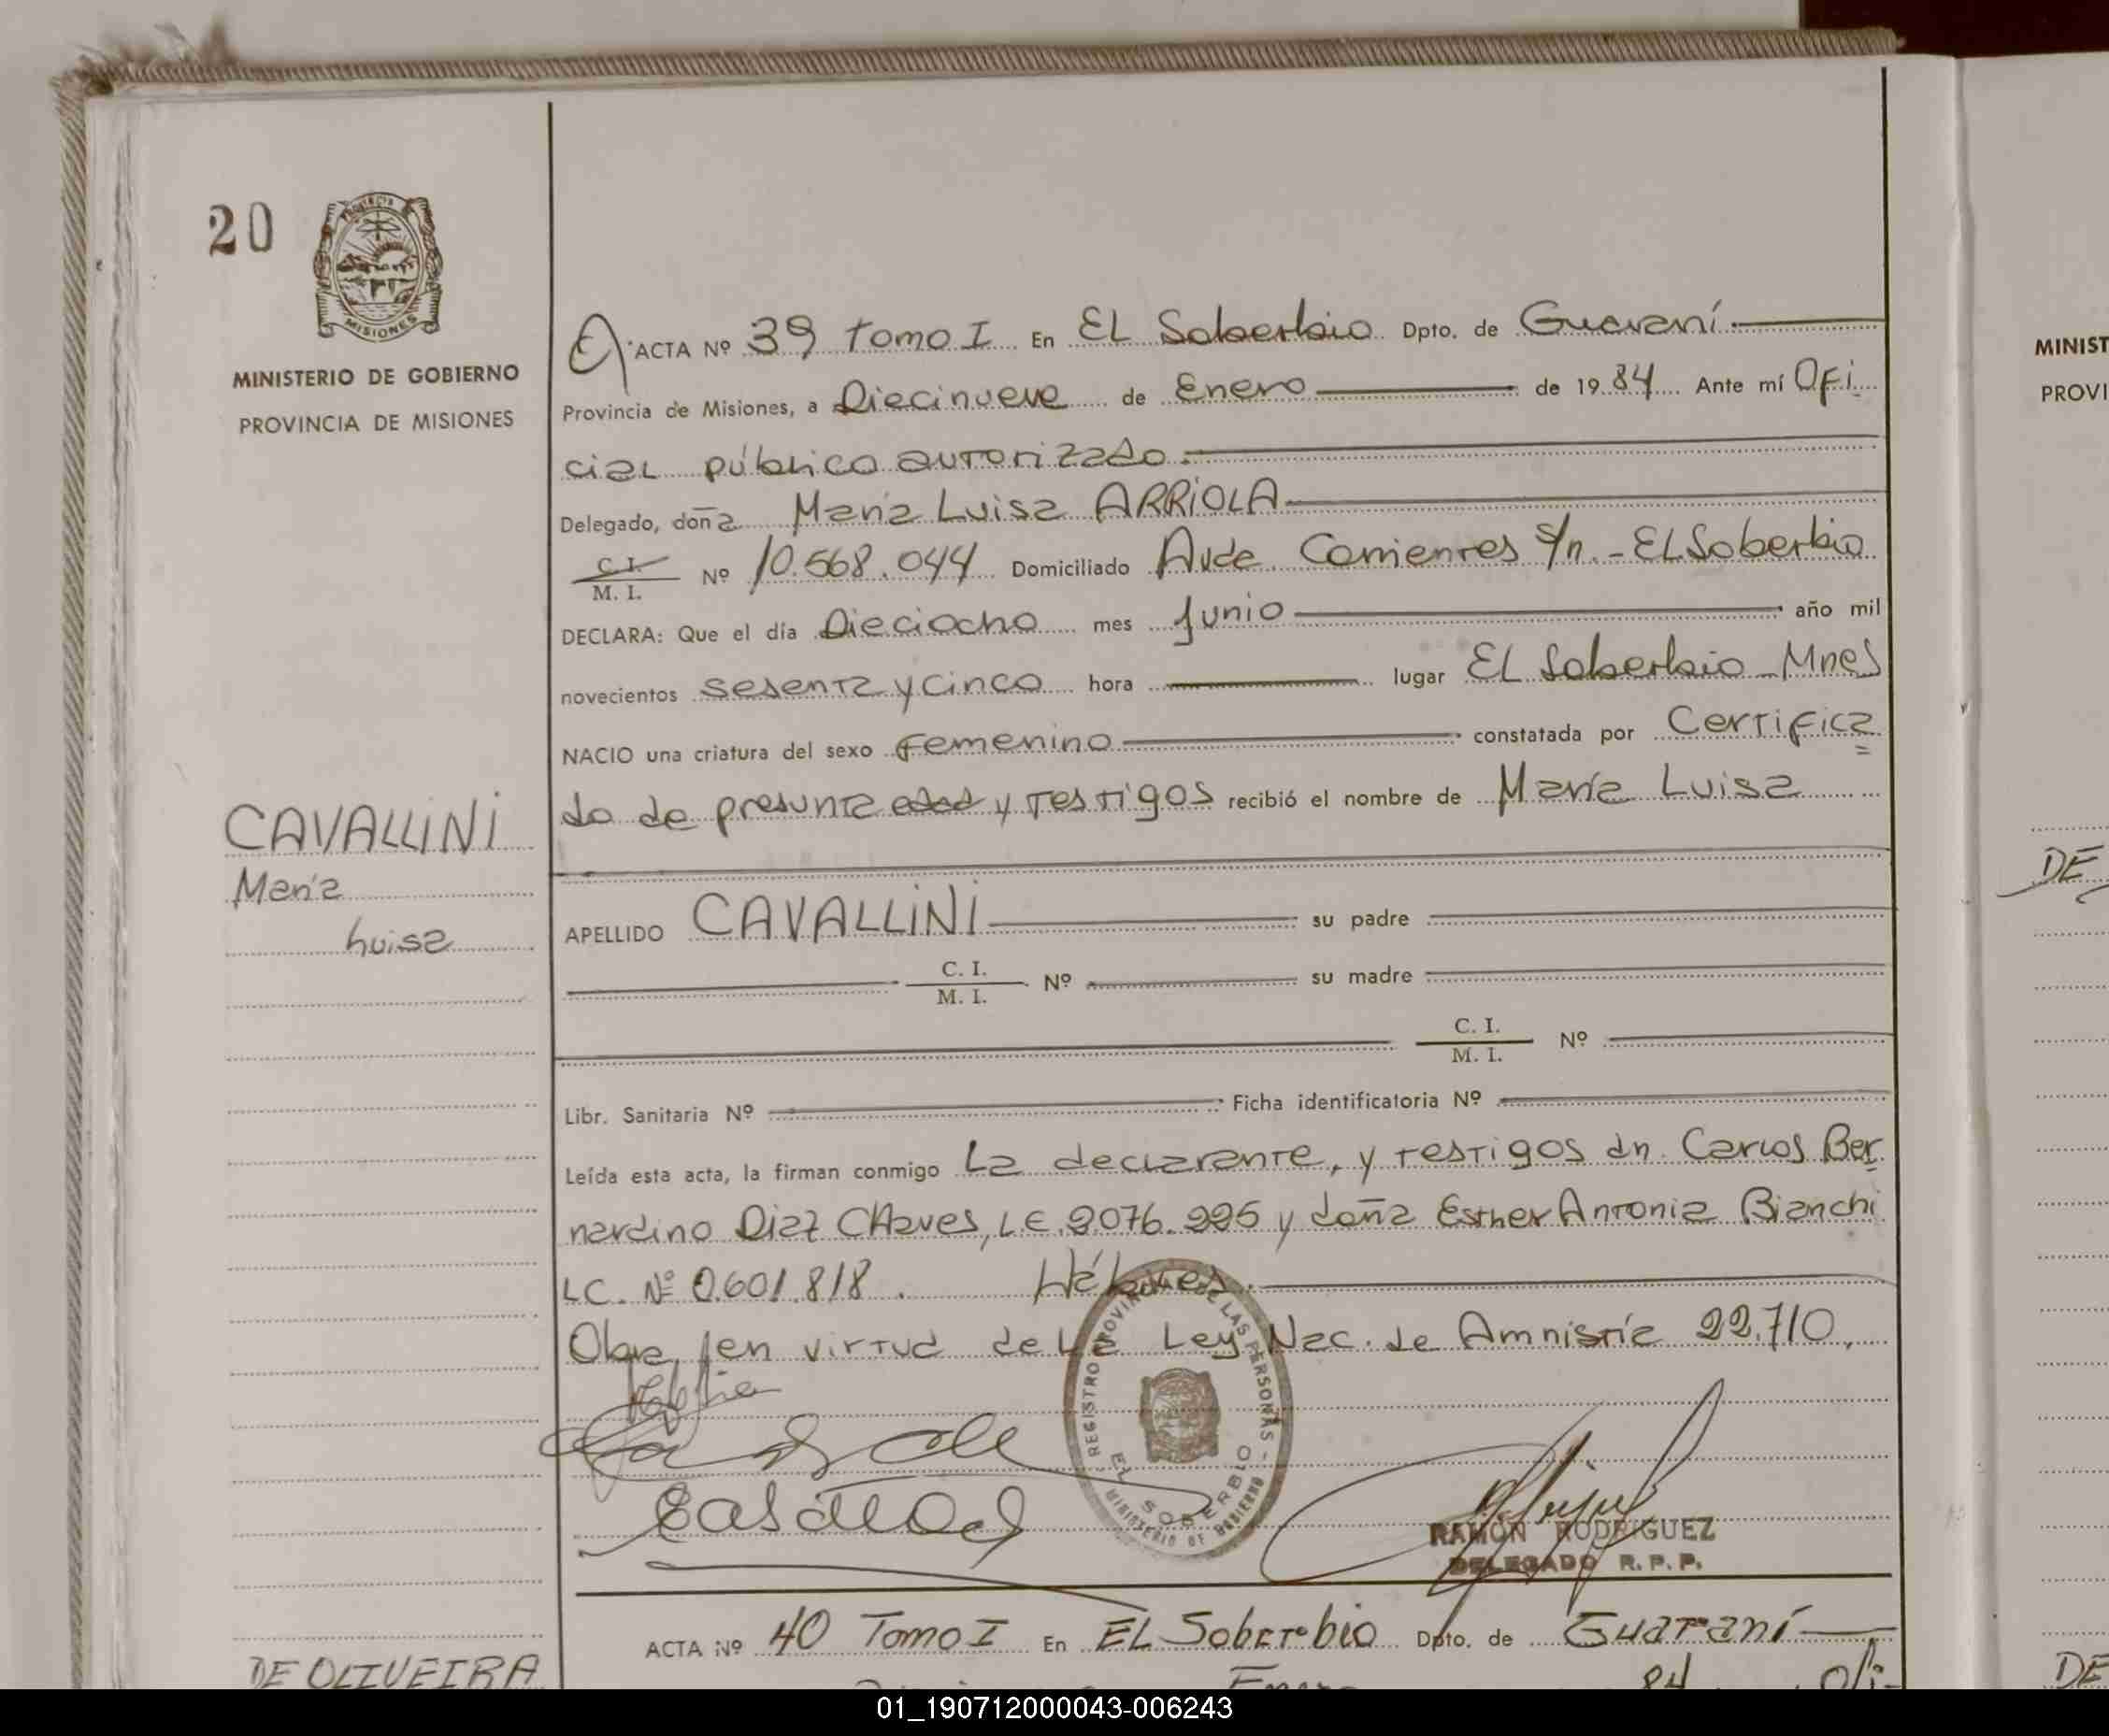 20
PROVINCIA
MISIONES
MINISTERIO DE GOBIERNO
PROVINCIA DE MISIONES
ACTA Nº 39 Tomo I En EL Soberbio Dpto. de Guaraní
Provincia de Misiones, a Diecinueve de Enero de 1984 Ante mí Ofi
cial público autorizado.
Delegado, doña María Luisa ARRIOLA
C.I.
M. I. Nº 10.568.044 Domiciliado Avde Corrientes s/n.-EL Soberbio
DECLARA: Que el día Dieciocho mes Junio año mil
novecientos sesenta y cinco hora lugar EL Soberbio-Mnes
NACIO una criatura del sexo femenino constatada por Certifica
do de presunta edad y testigos recibió el nombre de María Luisa
CAVALLINI
María
Luisa
APELLIDO CAVALLINI su padre
C. I.
M. I. Nº su madre
C. I.
M. I. Nº
Libr. Sanitaria Nº Ficha identificatoria Nº
Leída esta acta, la firman conmigo La declarante, y testigos dn. Carlos Ber
nardino Diaz Chaves, L.E. 2076.225 y doña Esther Antonia Bianchi
LC. Nº 0.601.818. Hébiles.
Obra, en virtud de La Ley Nac. de Amnistía 22.710,
REGISTRO PROVINCIAL DE LAS PERSONAS -
EL SOBERBIO
MINISTERIO DE GOBIERNO
RAMÓN RODRIGUEZ
DELEGADO R. P. P.
ACTA Nº 40 Tomo I En EL Soberbio Dpto. de Guaraní
DE OLIVEIRA
Enero 84 Ofi-
MINIST
PROVI
DE
DE
01_190712000043-006243